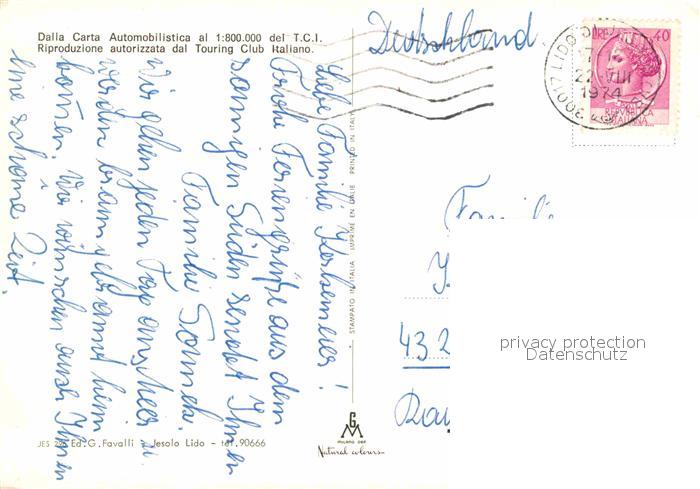 Dalla Carta Automobilistica al 1:800.000 del T.C.I.
Riproduzione autorizzata dal Touring Club Italiano.
Deutschland
Liebe Familie
Frohe Feriengrüße aus dem
sonnigen Süden sendet Ihnen
Familie
Wir gehen jeden Tag ans Meer u.
werden braungebrannt heim
kommen. Wir wünschen auch Ihnen
eine schöne Zeit.
STAMPATO IN ITALIA IMPRIME EN ITALIE PRINTED IN ITALY
LIRE 40
30017 LIDO DI
22 VIII
1974
REPUBBLICA
ITALIANA
Familie
432
privacy protection
Datenschutz
G
M
Natural colours
Ed. G. Favalli - Jesolo Lido - tel. 90666